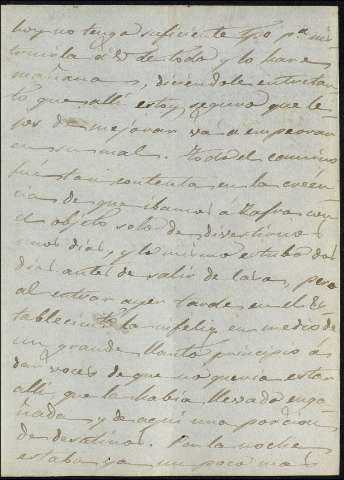 hoy no tengo suficiente tpo pª ins
truirla á V de todo y lo hare
mañana, diciendole entretan
to que alli estoy seguro que le
jos de mejorar vá a empeorar
en su mal. Todo el camino
fué tan contenta en la creen
cia de que ibamos á Zafra con
el objeto solo de divertirnos
unos dias, y lo mismo estubo dos
dias antes de salir de casa, pero
al entrar ayer tarde en el Es
tablecimto la infeliz en medio de
un grande llanto principio a
dar voces de que no queria estar
alli que la habia llevado enga
ñada y de aqui una porcion
de desatinos. Por la noche
estaba ya un poco mas